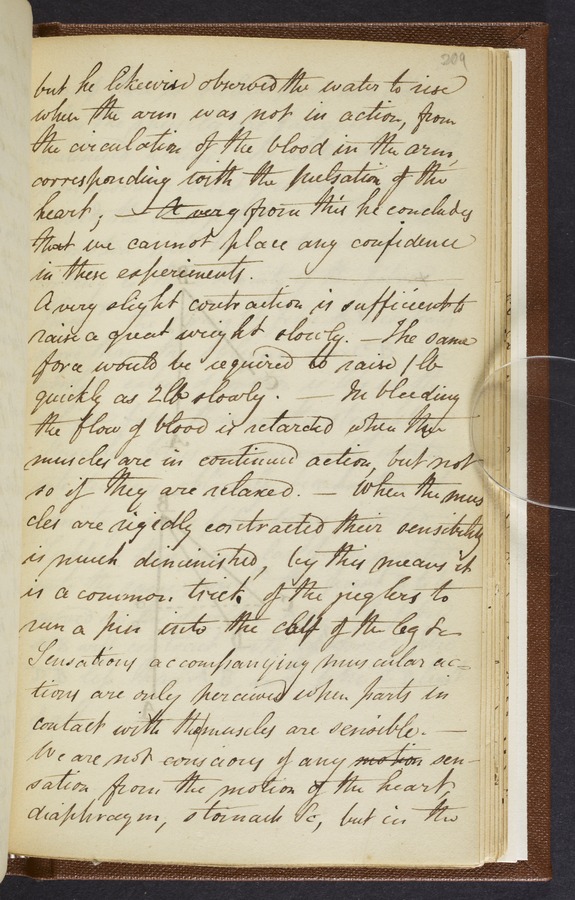 209
but he likewise observed the water to rise
when the arm was not in action, from
the circulation of the blood in the arm,
corresponding with the pulsation of the
heart; — A very from this he concludes
that we cannot place any confidence
in these experiments. —
A very slight contraction is sufficient to
raise a great weight slowly. — The same
force would be required to raise 1 lb
quickly as 2lb slowly. — In bleeding
the flow of blood is retarded when the
muscles are in continued action, but not
so if they are relaxed. — When the mus
cles are rigidly contracted their sensibility
is much diminished, by this means it
is a common trick of the juglers to
run a pin into the calf of the leg &c
Sensations accompanying muscular ac=
tions are only perceived when parts in
contact with the muscles are sensible. —
We are not conscious of any motion sen
sation from the motion of the heart,
diaphragm, stomach &c, but in the